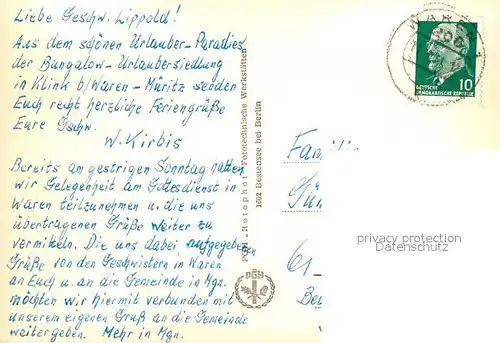 Liebe Geschw. Lippold!
Aus dem schönen Urlauber-Paradies
der Bungalow-Urlaubersiedlung
in Klink b/Waren-Müritz senden
Euch recht herzliche Feriengrüße
Eure Gschw.
W. Kirbis
Bereits am gestrigen Sonntag hatten
wir Gelegenheit am Gottesdienst in
Waren teilzunehmen u. die uns
übertragenen Grüße weiter zu
vermitteln. Die uns dabei aufgegebenen
Grüße von den Geschwistern in Waren
an Euch u. an die Gemeinde in Mgn.
möchten wir hiermit verbunden mit
unserem eigenen Gruß an die Gemeinde
weitergeben. Mehr in Mgn.
PGH „Rotophot" Fototechnische Werkstätten
1602 Bestensee bei Berlin
PGH
DEUTSCHE
DEMOKRATISCHE REPUBLIK
10
Famili
61
privacy protection
Datenschutz